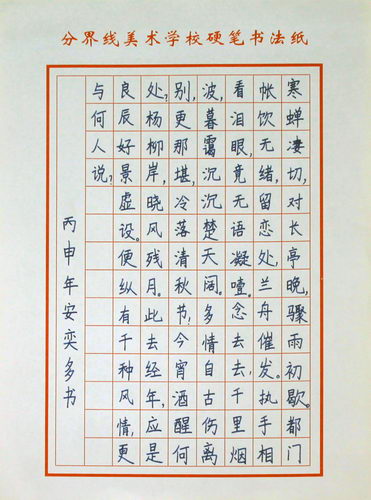 分界线美术学校硬笔书法纸
寒蝉凄切,对长亭晚,骤雨初歇。都门
帐饮无绪,留恋处,兰舟催发。执手相
看泪眼,竟无语凝噎。念去去,千里烟
波,暮霭沉沉楚天阔。多情自古伤离
别,更那堪,冷落清秋节!今宵酒醒何
处?杨柳岸,晓风残月。此去经年,应是
良辰好景虚设。便纵有千种风情,更
与何人说?
丙申年安奕多书